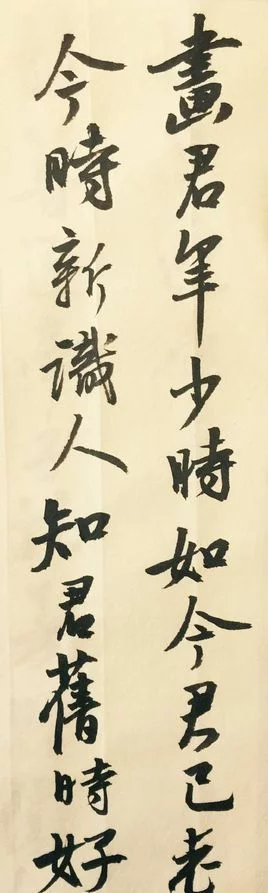 畫君年少時如今君已老
今時新識人知君舊時好